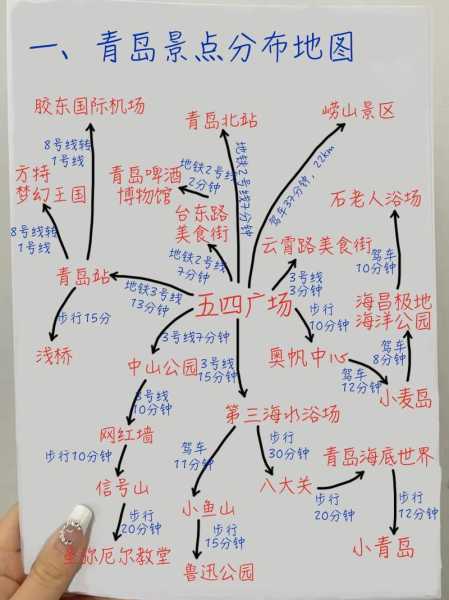 一、青岛景点分布地图
胶东国际机场
青岛北站
崂山景区
8号线转
1号线
地铁2号线
2分钟
地铁2号线7分钟
驾车37分钟，22km
方特
梦幻王国
青岛啤酒
博物馆
石老人浴场
台东路
美食街
云霄路美食街
8号线转
1号线
地铁2号线
7分钟
驾车
10分钟
青岛站
地铁3号线
13分钟
五四广场
3号线
3分钟
海昌极地
海洋公园
步行15分
步行
10分钟
3号线7分钟
浅桥
中山公园
3号线
15分钟
奥帆中心
驾车
8分钟
驾车
12分钟
小麦岛
3号线
10分钟
第三海水浴场
网红墙
驾车
11分钟
步行
30分钟
青岛海底世界
步行10分钟
信号山
八大关
步行
20分钟
小鱼山
步行
20分钟
步行
12分钟
步行
15分钟
厄尔教堂
小青岛
鲁迅公园